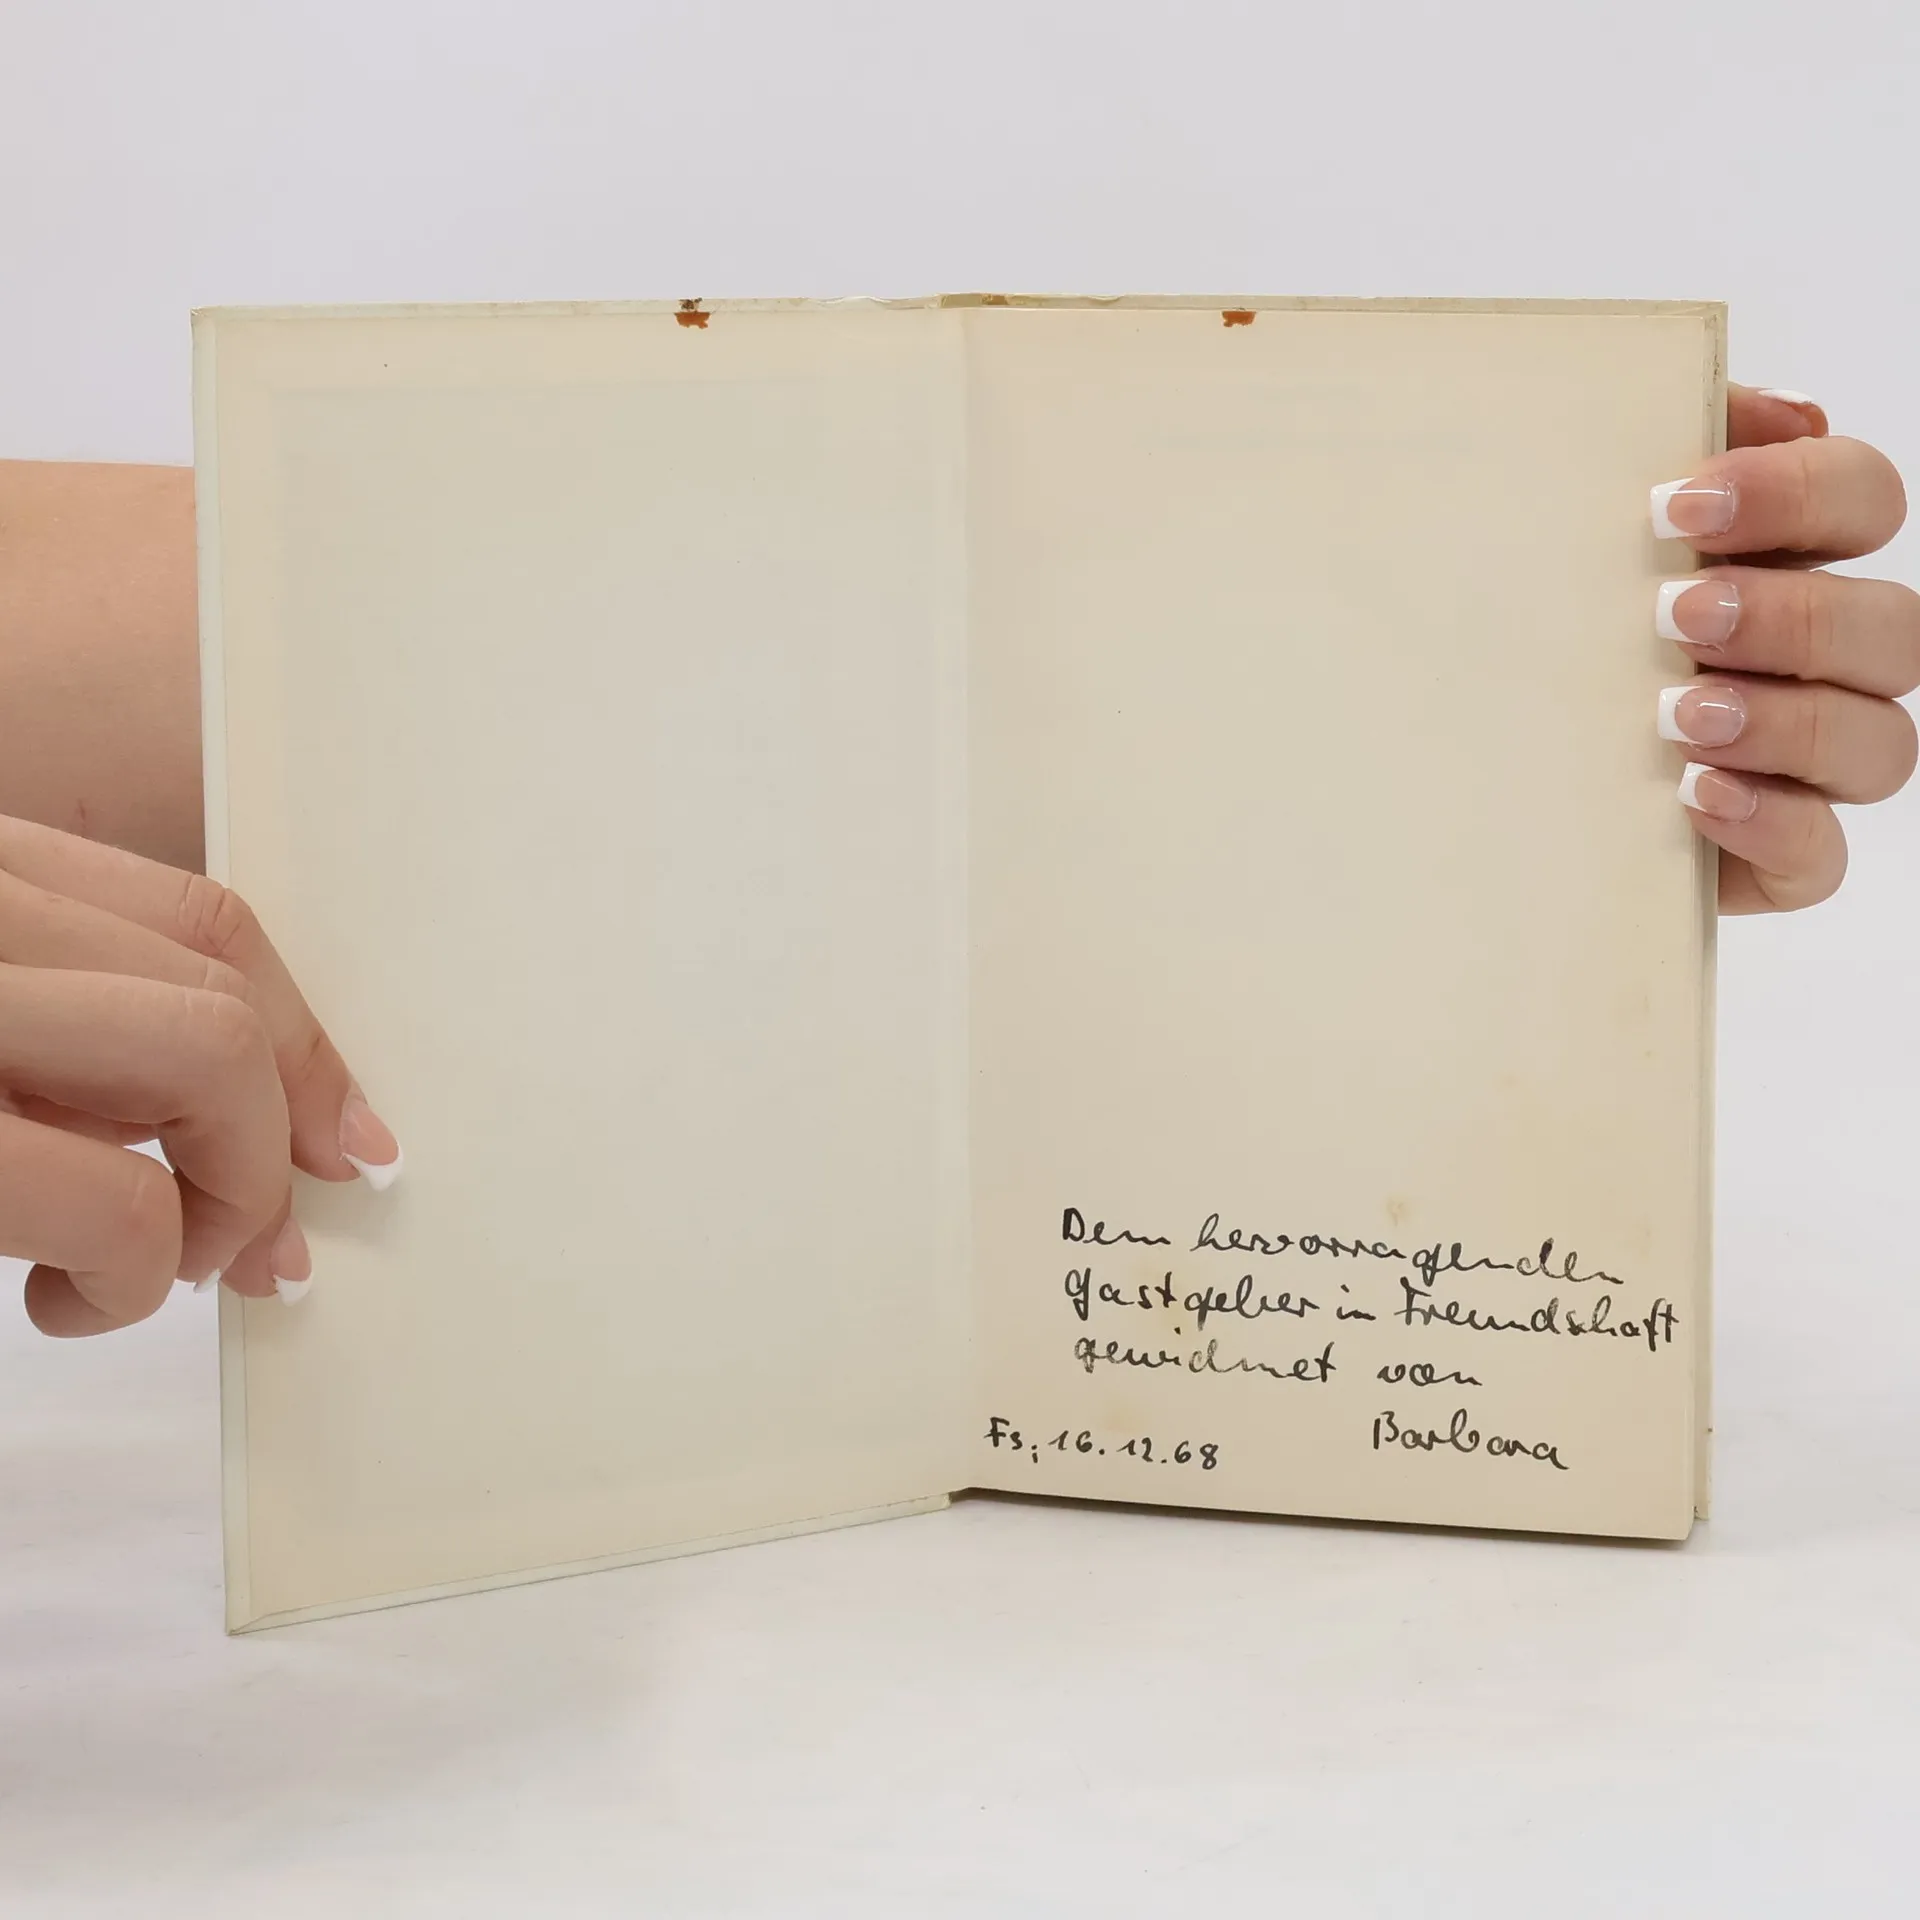 Dem hervorragenden
Gastgeber in Freundschaft
gewidmet von
Barbara
Fs; 16.12.68